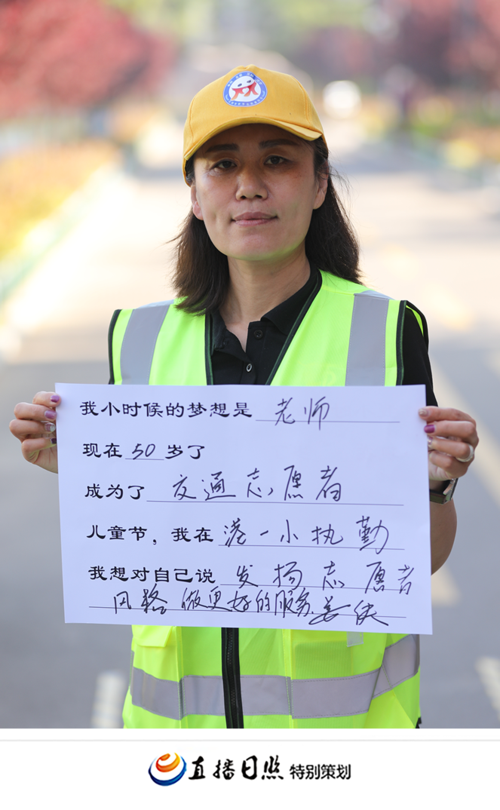 我小时候的梦想是 老师
现在 50 岁了
成为了 交通志愿者
儿童节，我在 港一小执勤
我想对自己说 发扬志愿者
风格 做更好的服务
直播日照 特别策划